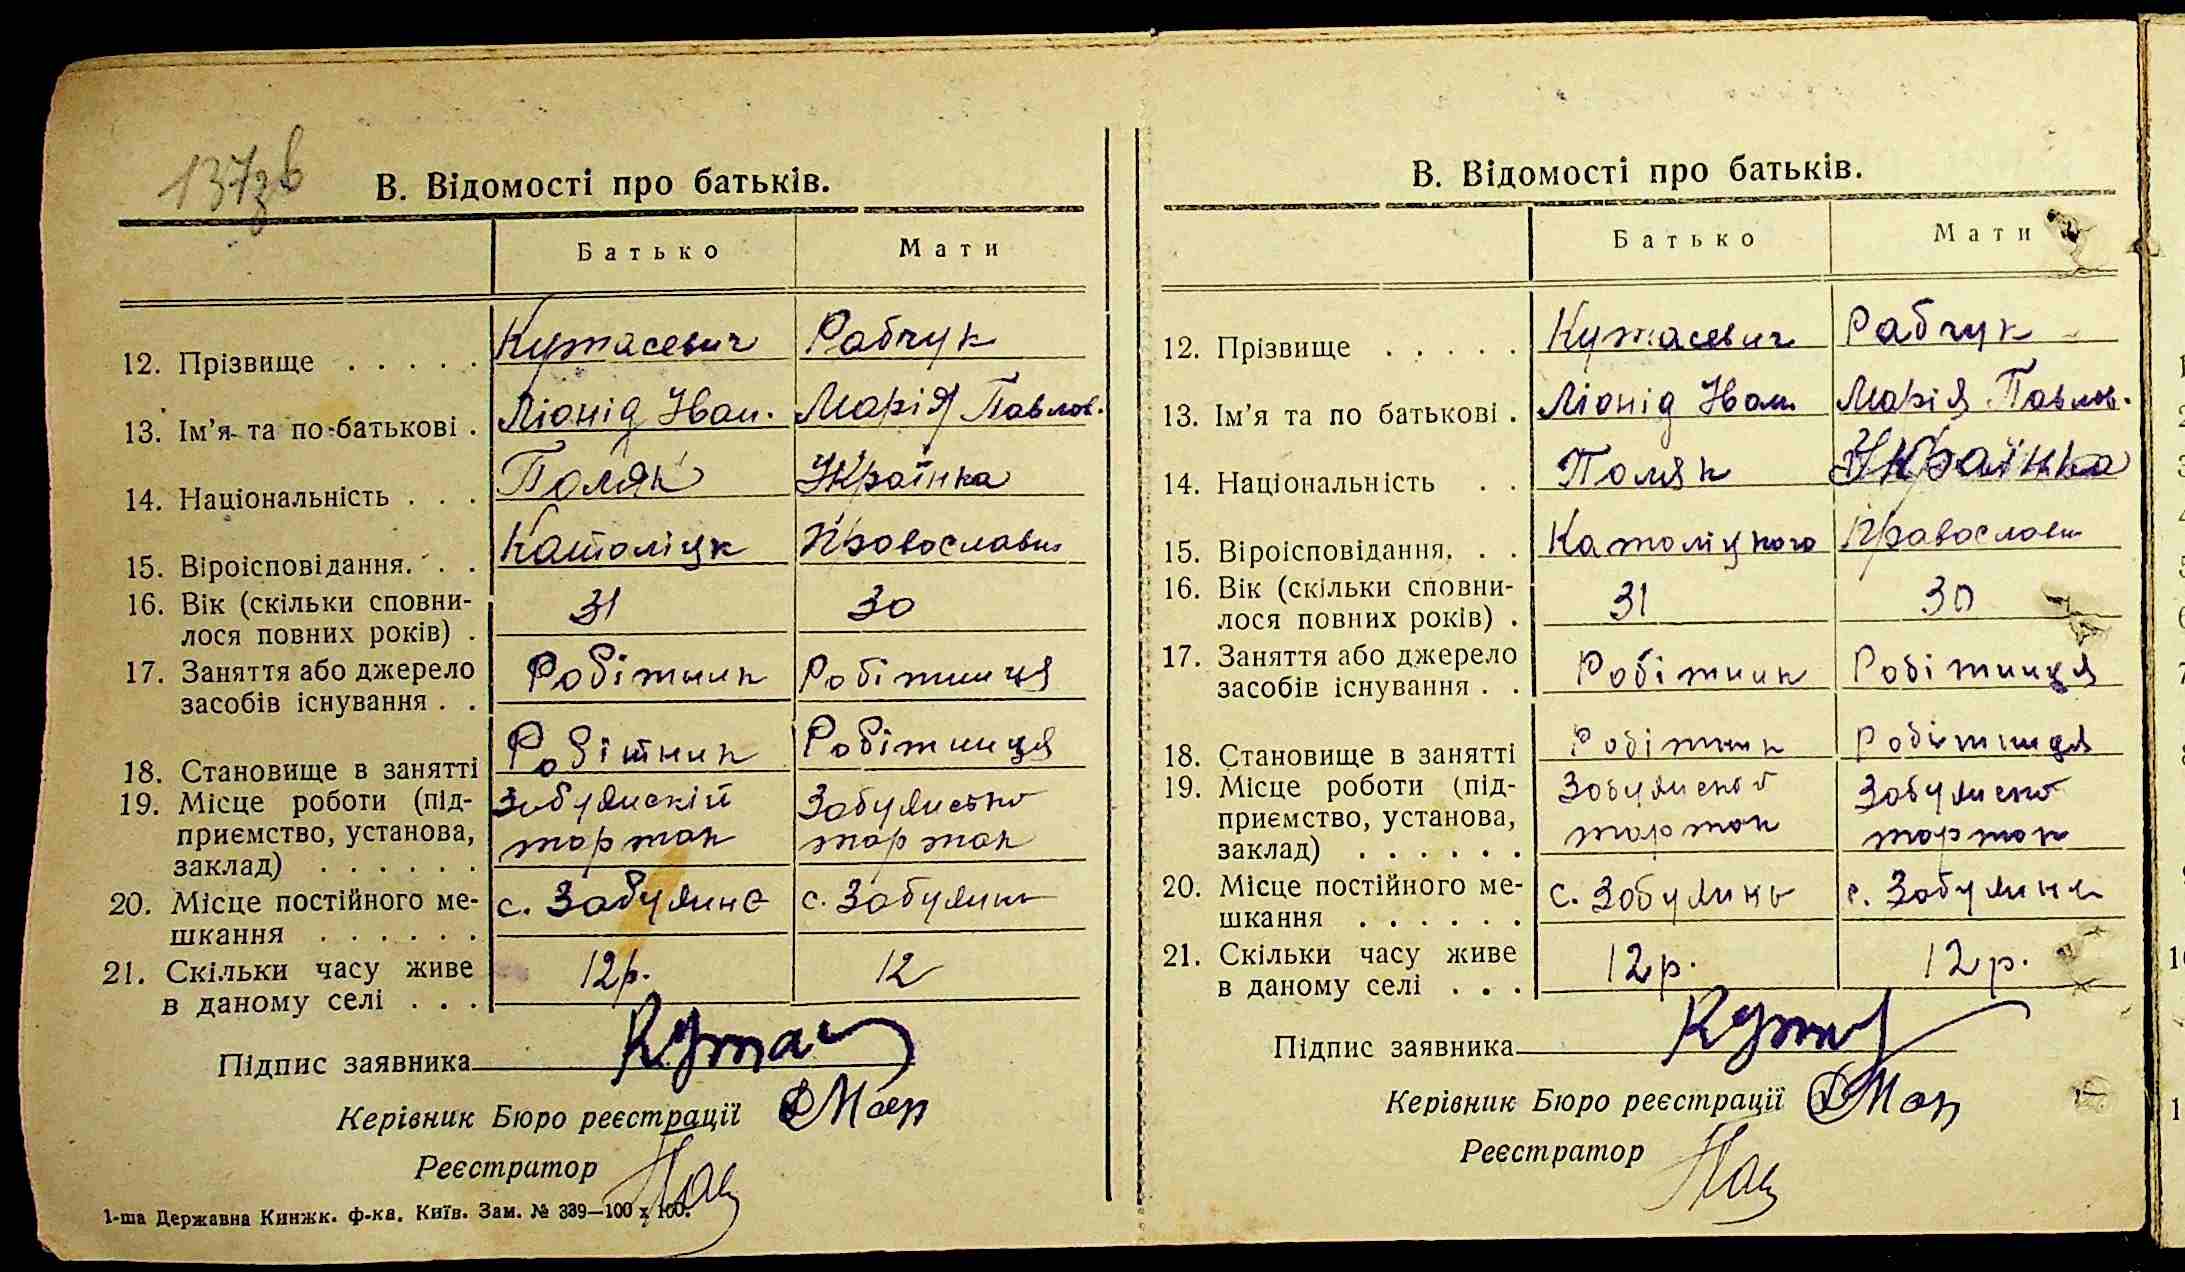 137зв
В. Відомості про батьків.
Батько Мати
12. Прізвище . . . . . Кутасевич Рабчук
13. Ім'я та по батькові . Ліонід Іван. Марія Павлов.
14. Національність . . . Поляк Українка
15. Віроісповідання. . . Католіцк Православн
16. Вік (скільки сповни-
лося повних років) . 31 30
17. Заняття або джерело
засобів існування . . Робітник Робітниця
18. Становище в занятті Робітник Робітниця
19. Місце роботи (під-
приємство, установа,
заклад) . . . . . .
20. Місце постійного ме-
шкання . . . . . . с. с.
21. Скільки часу живе
в даному селі . . . 12р. 12
Підпис заявника
Керівник Бюро реєстрації
Реєстратор
1-ша Державна Книжк. ф-ка. Київ. Зам. № 339—100 х 100.
В. Відомості про батьків.
Батько Мати
12. Прізвище . . . . . Кутасевич Рабчук
13. Ім'я та по батькові . Ліонід Іван. Марія Павлов.
14. Національність . . Поляк Українка
15. Віроісповідання. . . Католіцкого Православн
16. Вік (скільки сповни-
лося повних років) . 31 30
17. Заняття або джерело
засобів існування . . Робітник Робітниця
18. Становище в занятті Робітник Робітниця
19. Місце роботи (під-
приємство, установа,
заклад) . . . . . .
20. Місце постійного ме-
шкання . . . . . . с. с.
21. Скільки часу живе
в даному селі . . . 12р. 12р.
Підпис заявника
Керівник Бюро реєстрації
Реєстратор